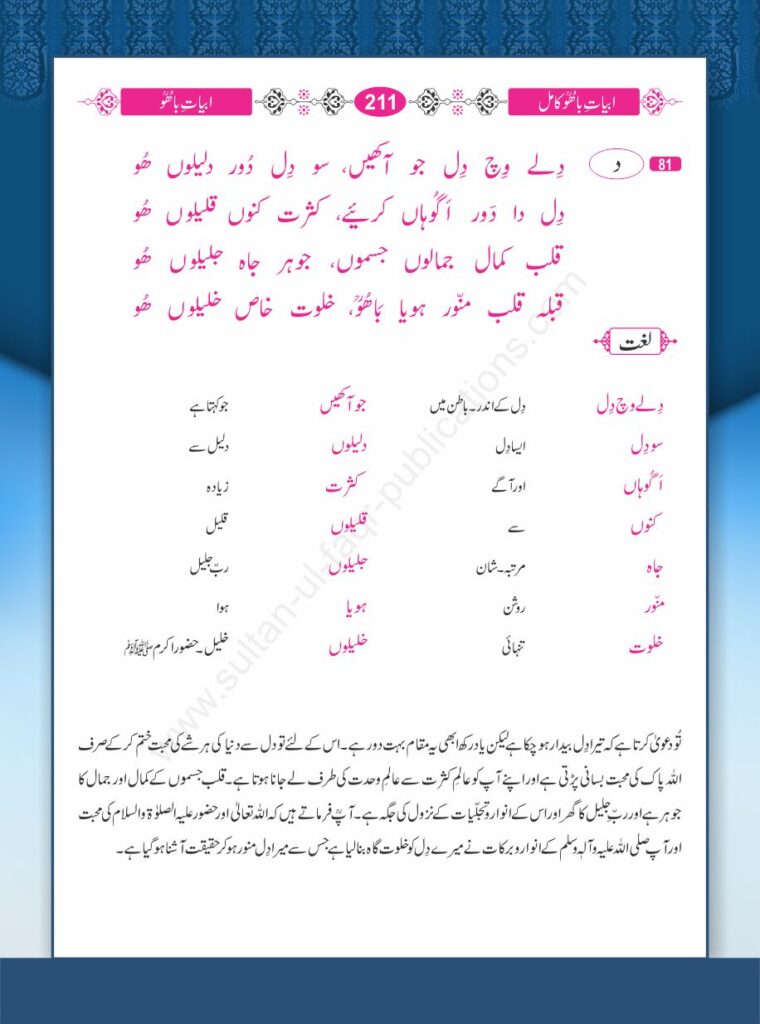 ابیاتِ باھُوؒ کامل 211 ابیاتِ باھُوؒ
81 د دِلے وِچ دِل جو آکھیں، سو دِل دُور دلیلوں ھُو
دِل دا دَور اَگوہاں کرئیے، کثرت کنوں قلیلوں ھُو
قلب کمال جمالوں جسموں، جوہر جاہ جلیلوں ھُو
قبلہ قلب منوّر ہویا بَاھُوؒ، خلوت خاص خلیلوں ھُو
لغت
دِلے وِچ دِل دِل کے اندر۔ باطن میں جو آکھیں جو کہتا ہے
سو دِل ایسا دِل دلیلوں دلیل سے
اَگوہاں اور آگے کثرت زیادہ
کنوں سے قلیلوں قلیل
جاہ مرتبہ۔ شان جلیلوں ربّ جلیل
منوّر روشن ہویا ہوا
خلوت تنہائی خلیلوں خلیل۔ حضور اکرم ﷺ
تُو دعویٰ کرتا ہے کہ تیرا دِل بیدار ہو چکا ہے لیکن یاد رکھ ابھی یہ مقام بہت دور ہے۔ اس کے لئے تو دل سے دنیا کی ہر شے کی محبت ختم کر کے صرف
اللہ پاک کی محبت بسانی پڑتی ہے اور اپنے آپ کو عالمِ کثرت سے عالمِ وحدت کی طرف لے جانا ہوتا ہے۔ قلب جسموں کے کمال اور جمال کا
جوہر ہے اور ربّ جلیل کا گھر اور اس کے انوار و تجلّیات کے نزول کی جگہ ہے۔ آپؒ فرماتے ہیں کہ اللہ تعالیٰ اور حضور علیہ الصلوٰۃ والسلام کی محبت
اور آپ صلی اللہ علیہ وآلہٖ وسلم کے انوار و برکات نے میرے دِل کو خلوت گاہ بنا لیا ہے جس سے میرا دِل منور ہو کر حقیقت آشنا ہو گیا ہے۔
www.sultan-ul-faqr-publications.com